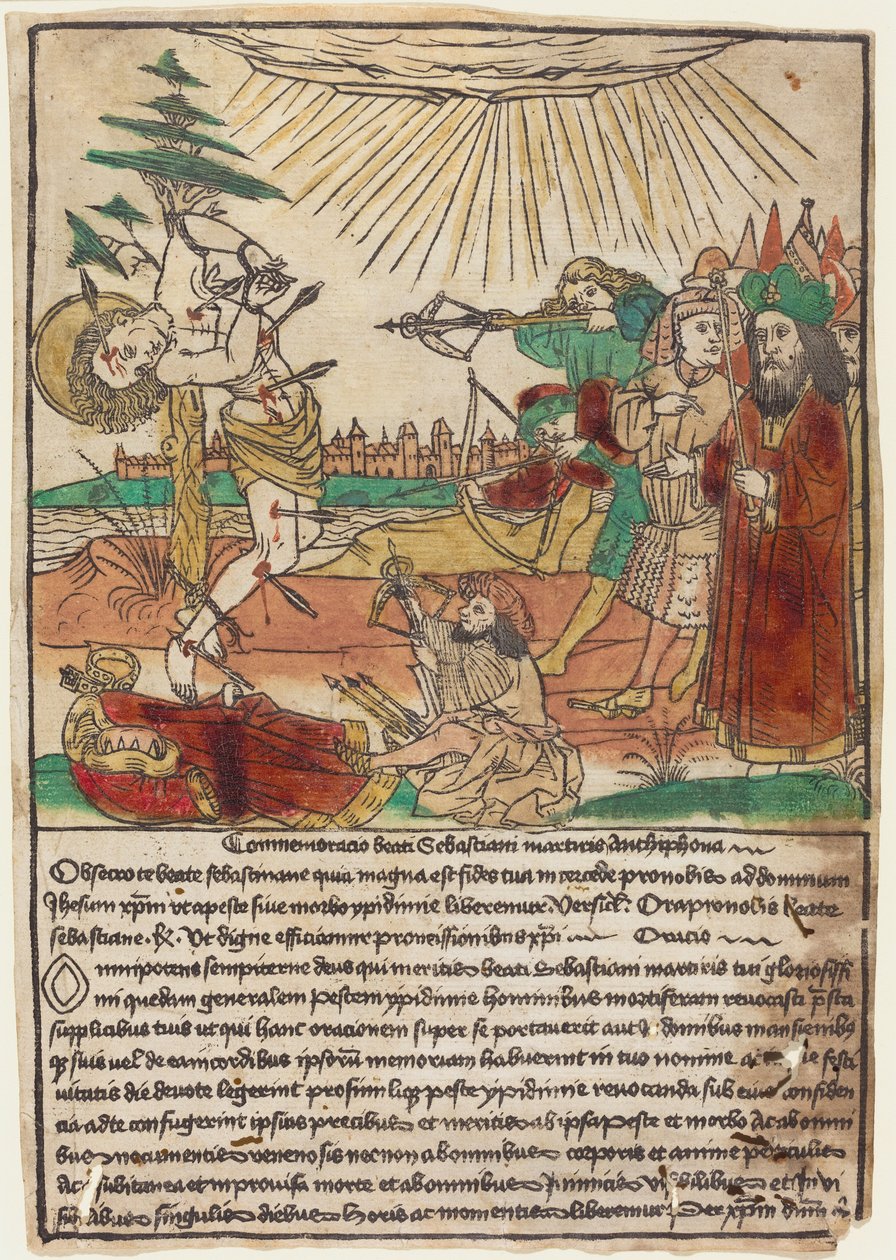 Commemoracio beati Sebastiani martiris Anthiphona
Obsecro te beate sebastiane quia magna est fides tua intercede pro nobis ad dominum
Jhesum xp̄m vt a peste siue morbo ypidimie liberemur. Versicl̄: Ora pro nobis beate
sebastiane. R. Vt digne efficiamur promissionibus xp̄i Oracio
Omnipotens sempiterne deus qui meritis beati Sebastiani martiris tui gloriosissi
mi quedam generalem pestem ypidimie hominibus mortiferam reuocasti p̄sta
supplicibus tuis ut qui hanc oracionem super se portauerit aut domibus mansienibꝰ
suis uel de ea in cordibus ipsorū memoriam habuerint in tuo nomine festi
uitatis die deuote legerint peste ypidimie reuocanda sub eius confiden
cia ad te confugerint ipsius precibus et meritis ab ipsa Peste et morbo Ac ab omni
bus nocumentis venenosis necnon ab omnibus corporis et anime periculis
Ac subitanea et improuisa morte et ab omnibus Inimicis visibilibus et Inui
sibilibus singulis diebus Horis ac momentis liberemur Per xp̄m dn̄m